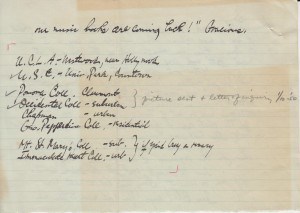 me music books are coming back!" Precious.
U.C.L.A. - Westwood, near Hollywood
U.S.C. - Univ. Park, downtown
Pomona Coll. - Claremont
Occidental Coll. - suburban
Chapman - urban
Geo. Pepperdine Coll. - residential
} picture sent & letter of inquiry
Mt. St. Mary's Coll. - sub.
Immaculate Heart Coll. - urb
} if good buy a